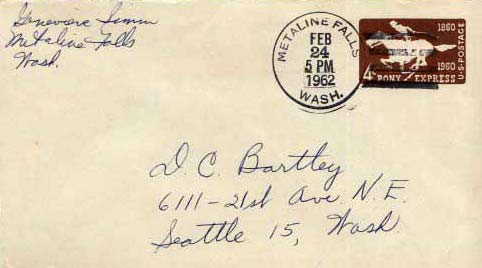 Genevieve Simm
Metaline Falls
Wash.
METALINE FALLS
FEB
24
5 PM
1962
WASH.
1860
1960
U.S. POSTAGE
4¢ PONY EXPRESS
D. C. Bartley
6111-21st Ave N.E.
Seattle 15, Wash